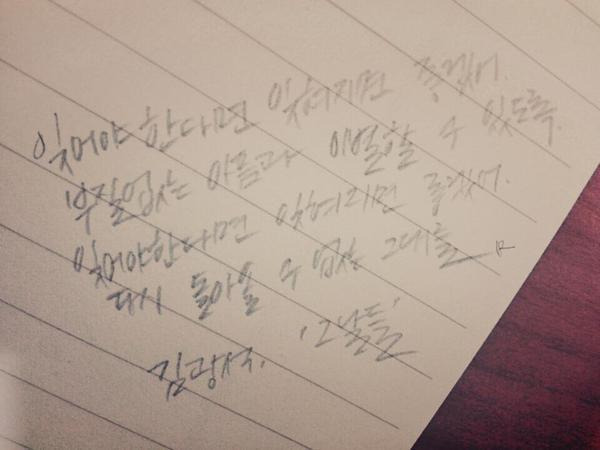 잊어야 한다면 잊혀지면 좋겠어.
부질없는 아픔과 이별할 수 있도록.
잊어야한다면 잊혀지면 좋겠어.
다시 돌아올 수 없는 그대를
김광석. '그날들'